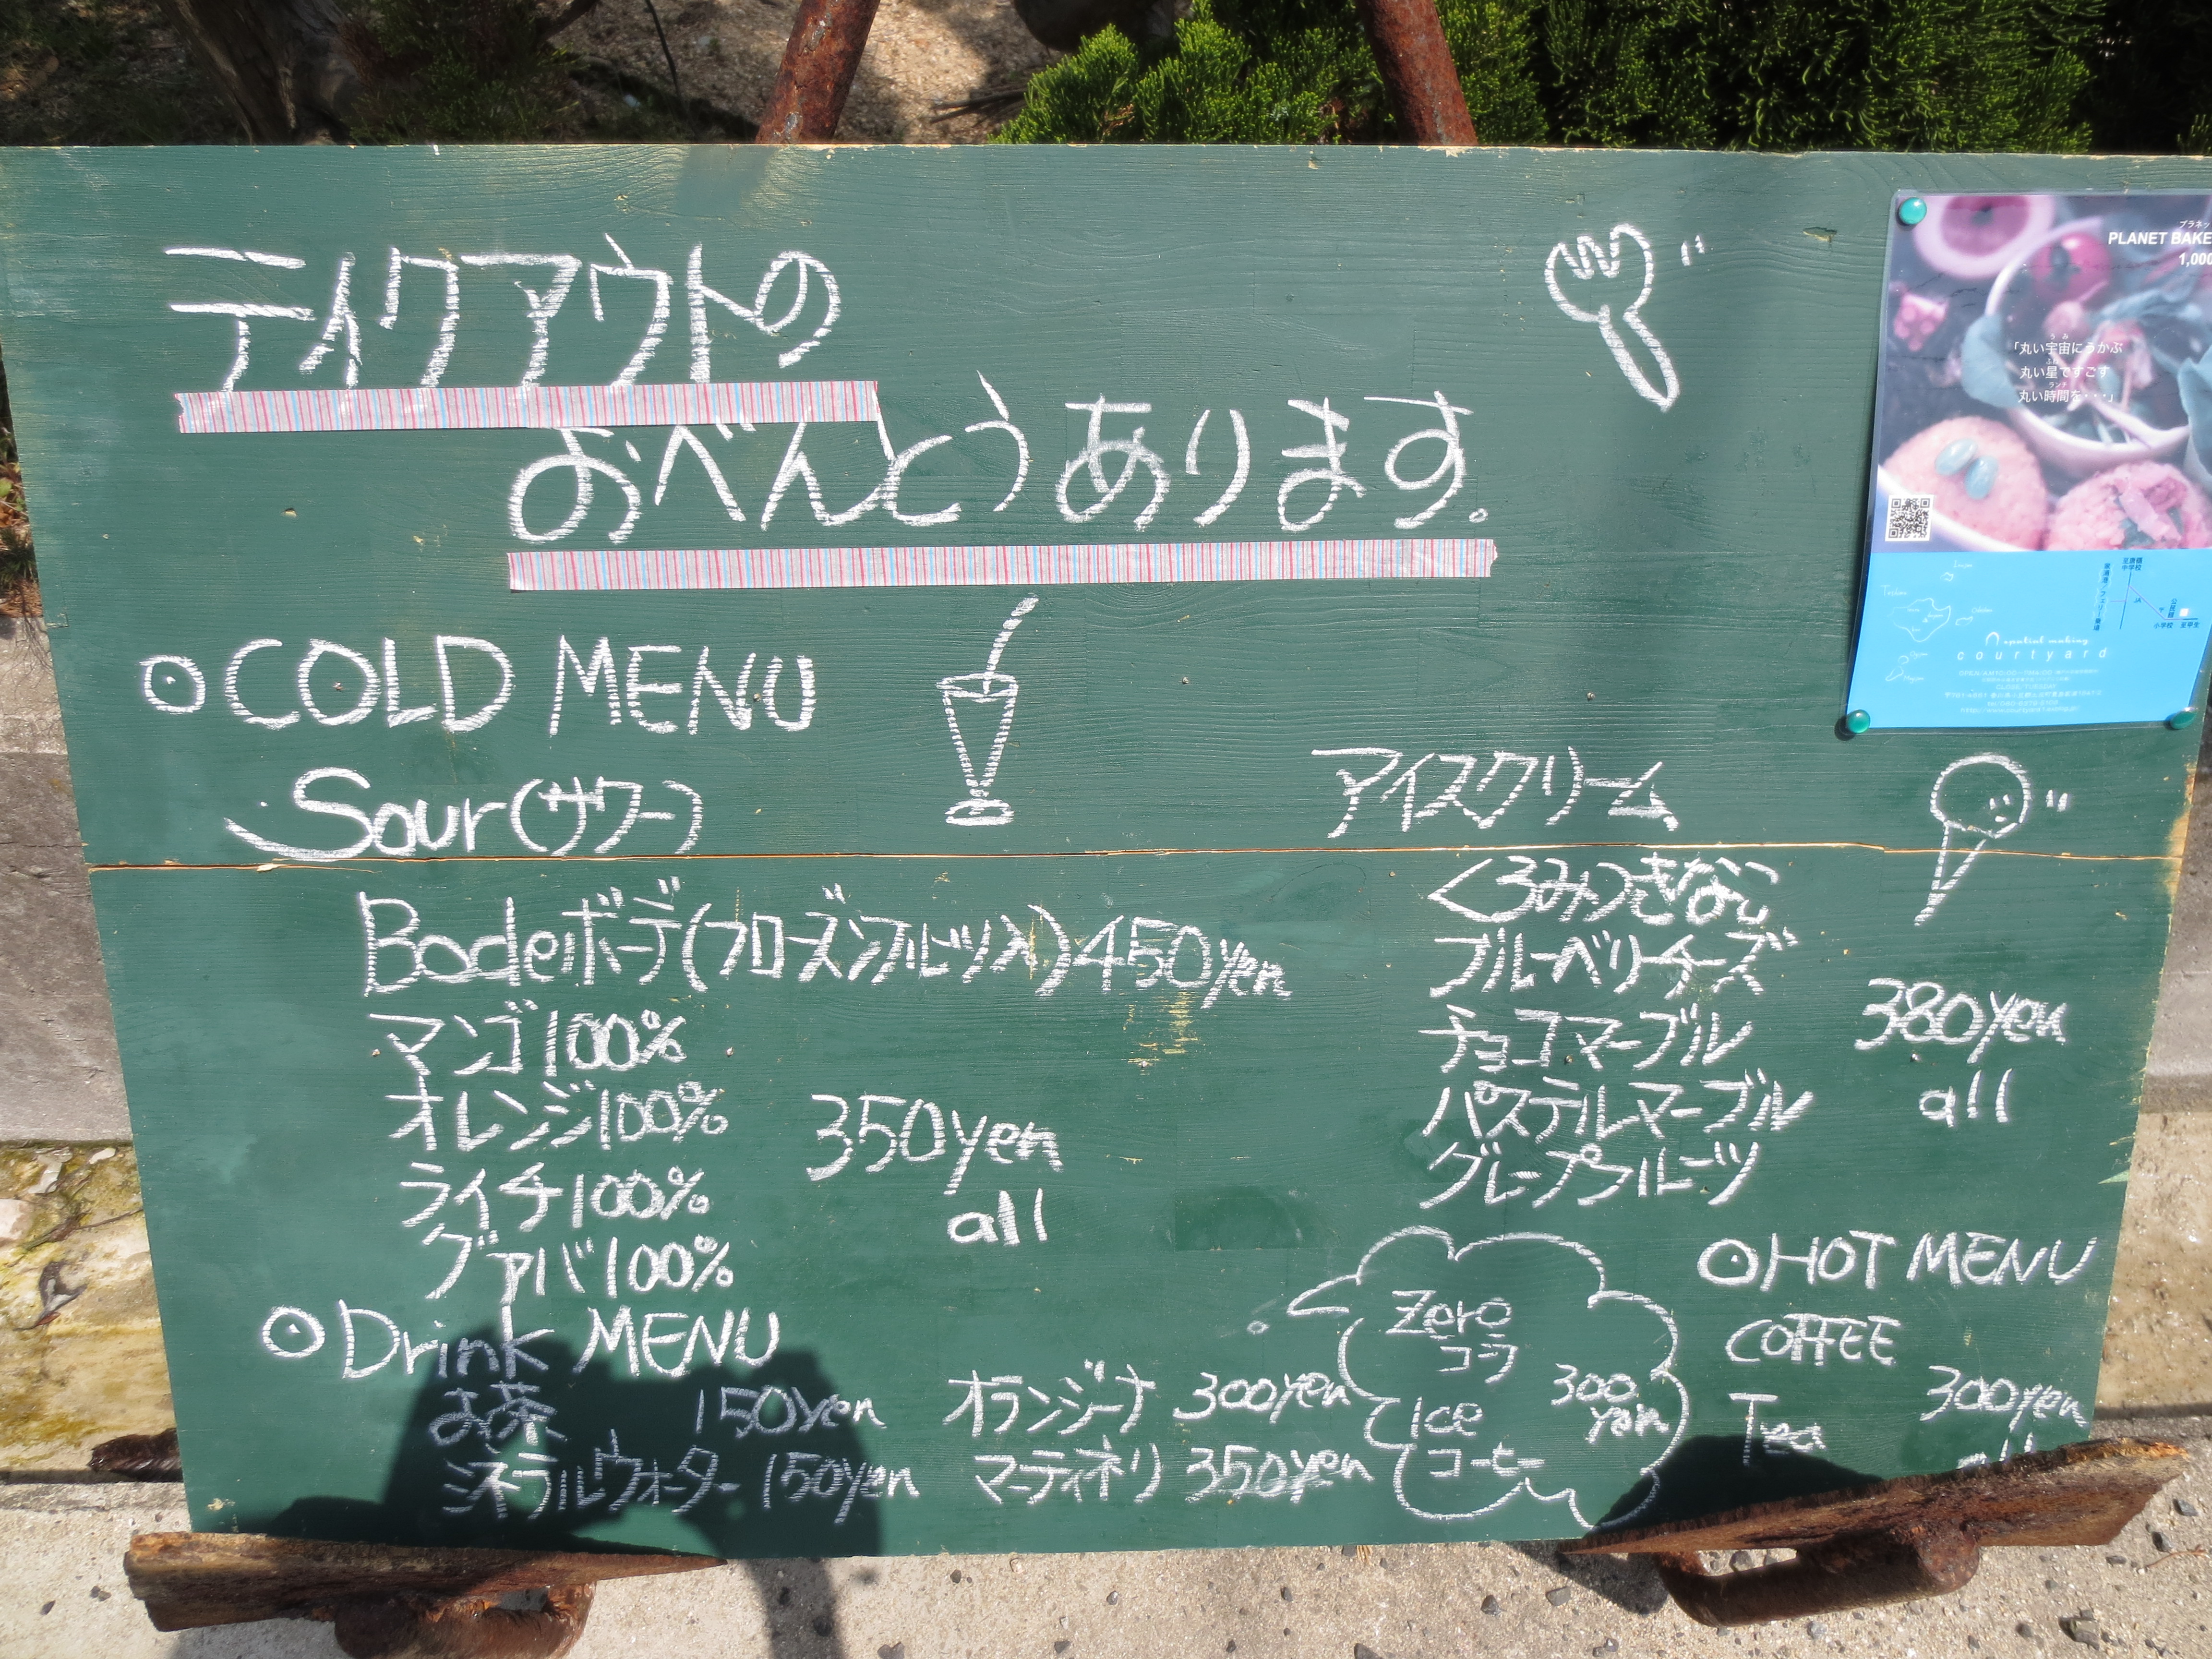 テイクアウトの
おべんとうあります。
COLD MENU
Sour(サワー)
Bodeiボーデ(フローズンフルーツ入)450yen
マンゴ100%
オレンジ100%
ライチ100%
グァバ100%
350yen
all
アイスクリーム
くろみつきなこ
ブルーベリーチーズ
チョコマーブル
パステルマーブル
グレープフルーツ
380yen
all
Drink MENU
お茶 150yen
ミネラルウォーター 150yen
オランジーナ 300yen
マーティネリ 350yen
Zero
コーラ
Ice
コーヒー
300
yen
HOT MENU
COFFEE
Tea
300yen
all
PLANET BAKE
1,000
「丸い宇宙にうかぶ
丸い星ですごす
丸い時間を・・・」
courtyard